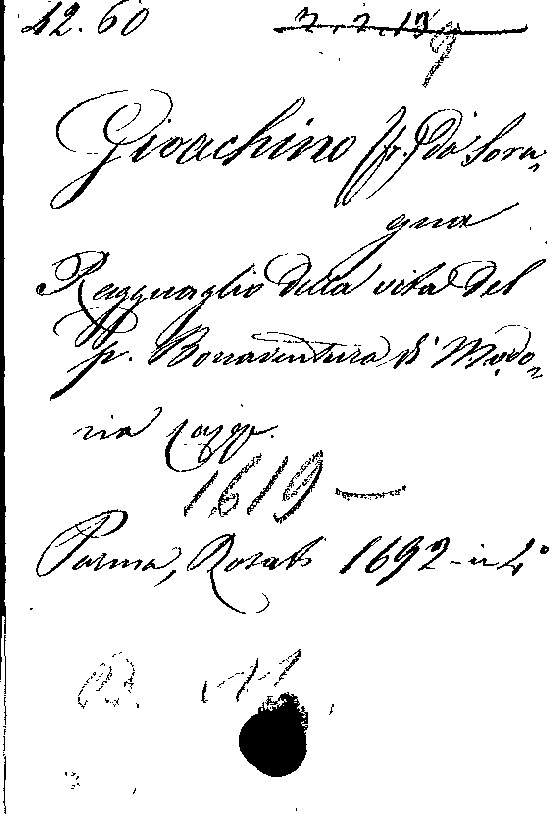 42.60 2.2.15
9
Gioachino (fr.) da Sora-
gna
Ragguaglio della vita del
p. Bonaventura di Modo-
nia capp.
1619 —
Parma, Rosati 1692 - in 4°
B.